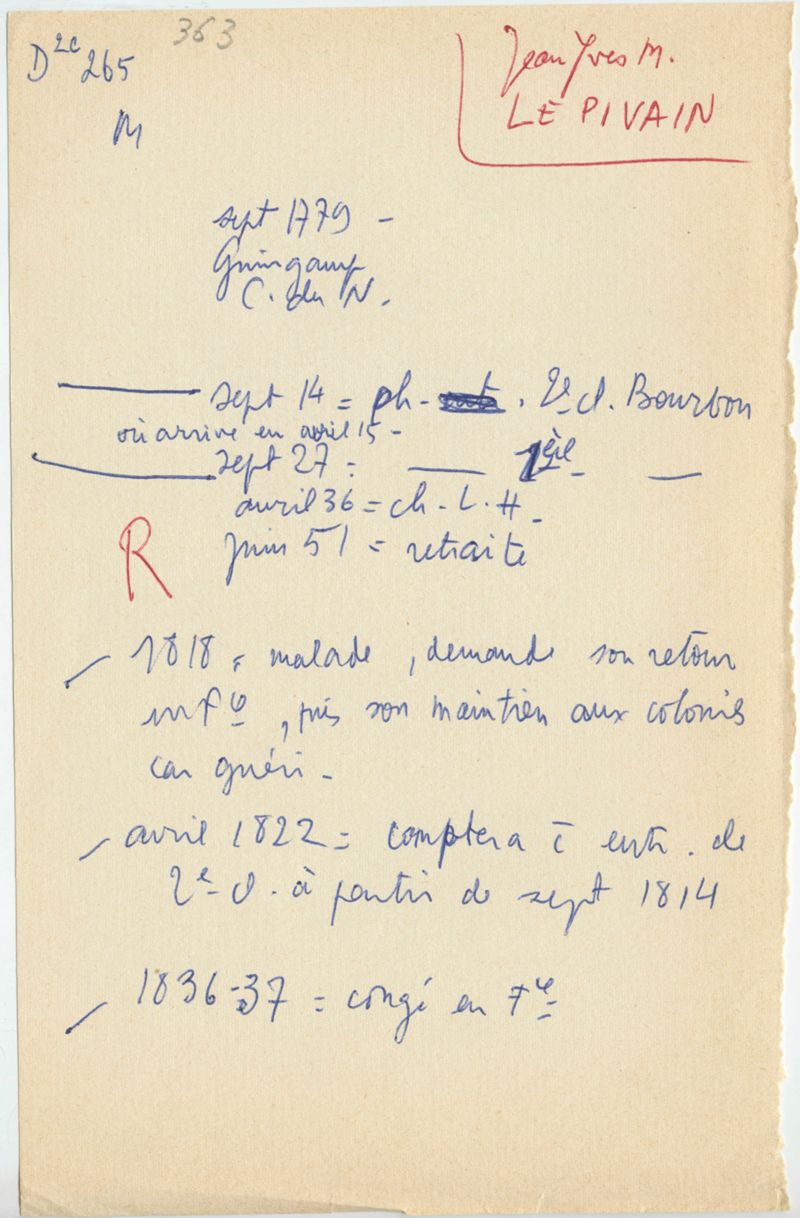 363
D2c 265
M
Jean Yves M.
LE PIVAIN
sept 1779 -
Guingamp
C. du N.
sept 14 = ph - . 2e cl. Bourbon
où arrive en avril 15 -
sept 27 = — 1ère —
avril 36 = ch. L. H.
R
juin 51 = retraite
1818 = malade, demande son retour
en Fce, puis son maintien aux colonies
car guéri -
avril 1822 = comptera c̄ entr. de
2e cl. à partir de sept 1814
1836-37 = congé en Fce